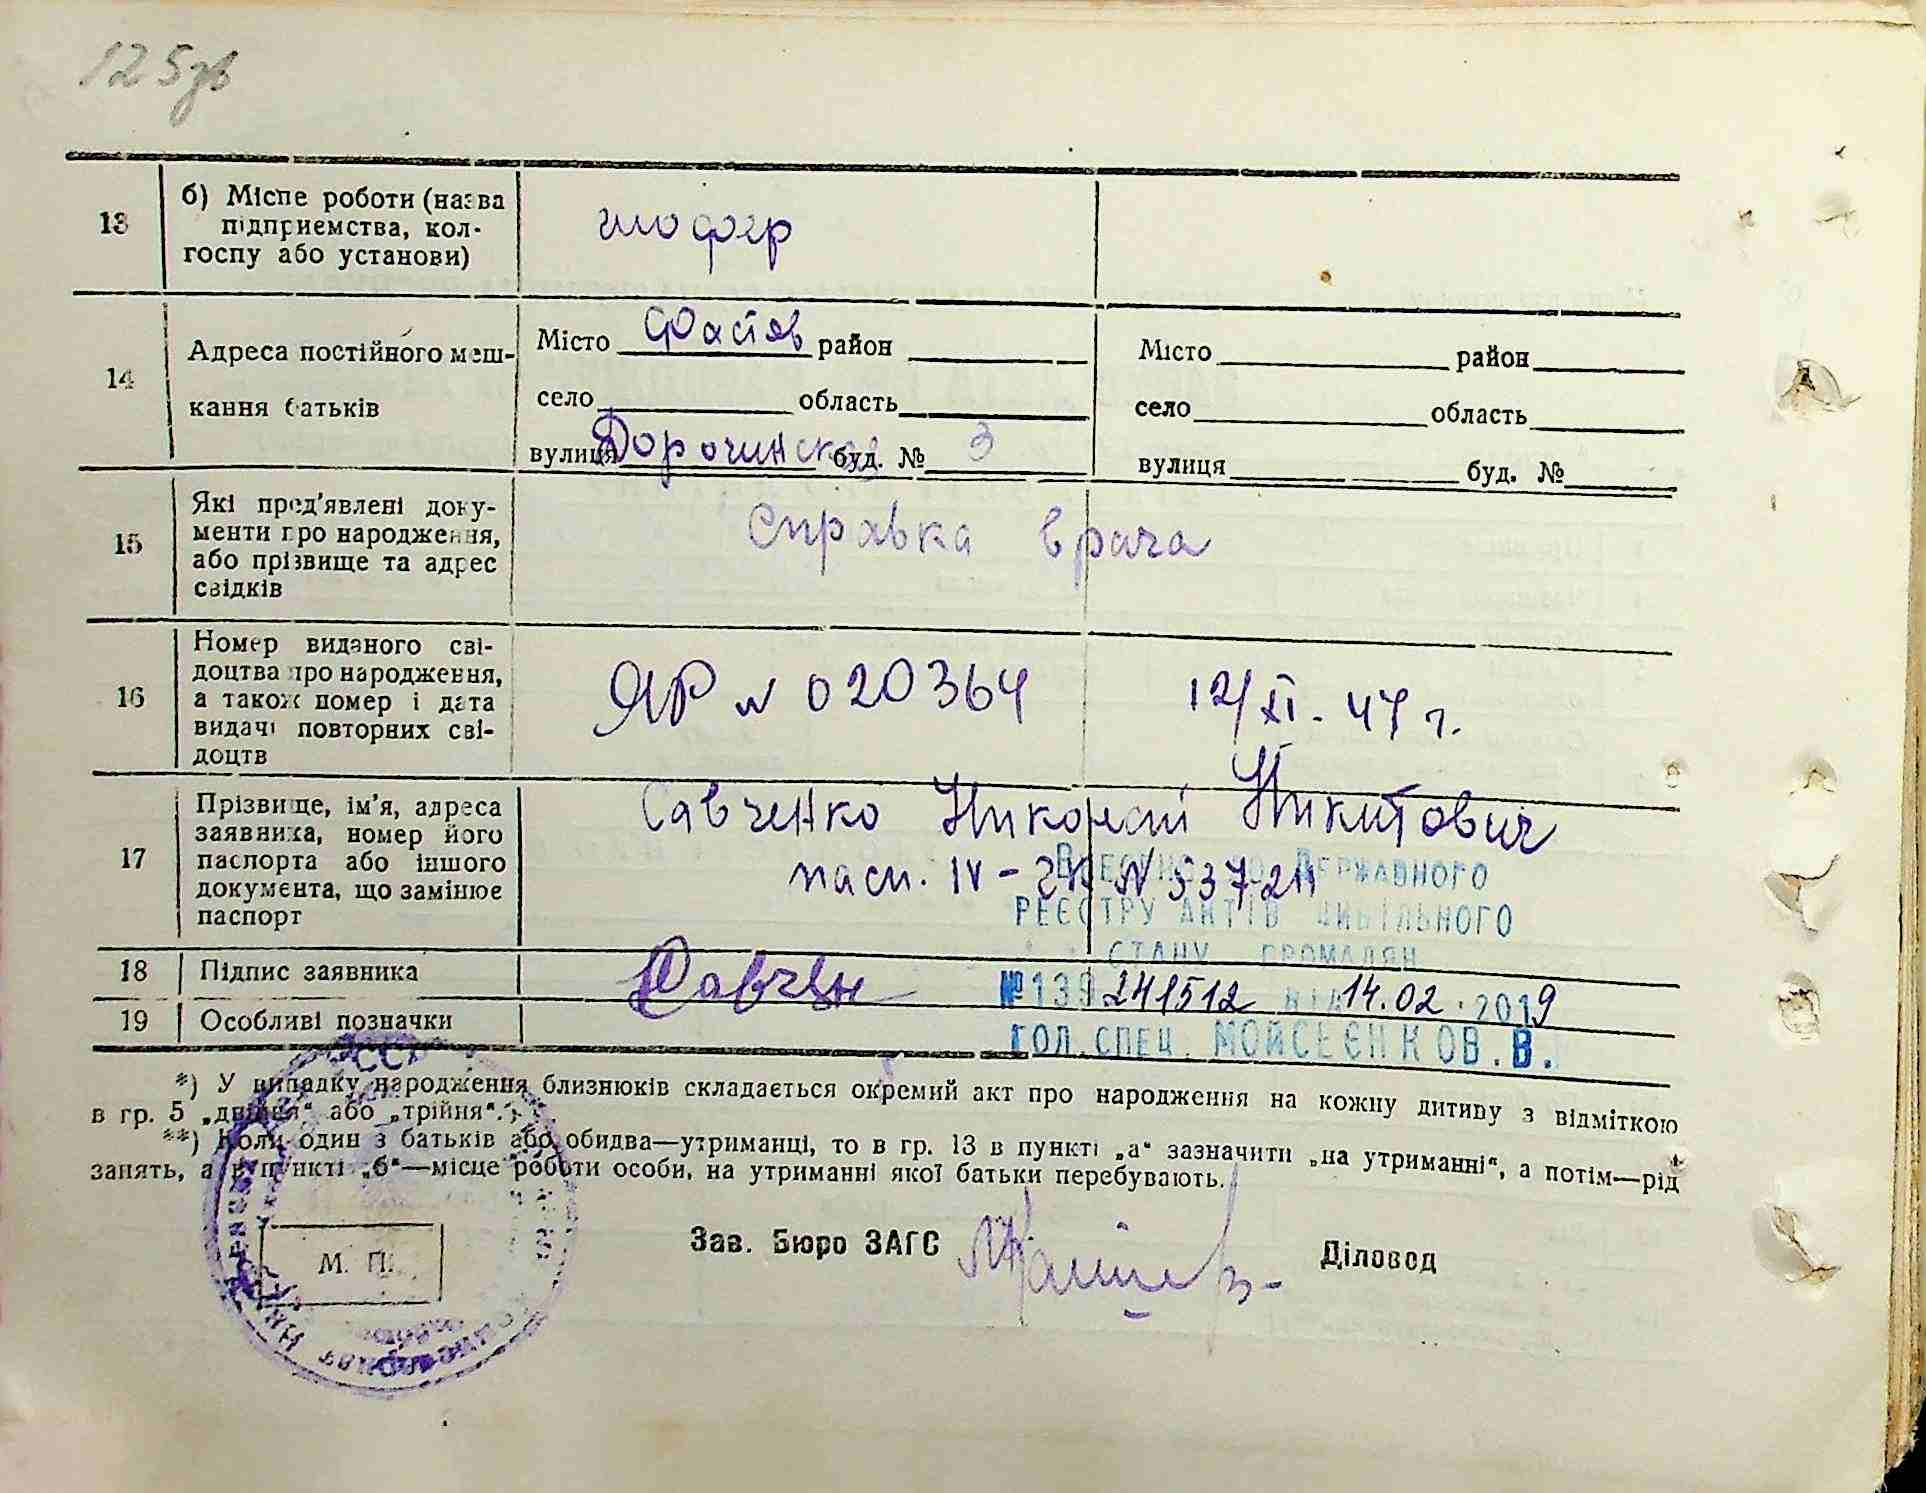 125зв
13
б) Місце роботи (назва
підприємства, кол-
госпу або установи)
шофер
14
Адреса постійного меш-
кання батьків
Місто Фастов район
село область
вулиця буд. № 3
Місто район
село область
вулиця буд. №
15
Які пред'явлені доку-
менти про народження,
або прізвище та адрес
свідків
справка врача
16
Номер виданого сві-
доцтва про народження,
а також номер і дата
видачі повторних сві-
доцтв
ЯР № 020364 12/XI-47 г.
17
Прізвище, ім'я, адреса
заявника, номер його
паспорта або іншого
документа, що замінює
паспорт
Савченко Николай Никитович
пасп. IV-
ВНЕСЕНО ДО ДЕРЖАВНОГО
РЕЄСТРУ АКТІВ ЦИВІЛЬНОГО
СТАНУ ГРОМАДЯН
18 Підпис заявника
Савчен
№139 241512 ВІД 14.02.2019
19 Особливі позначки
ГОЛ. СПЕЦ. МОЙСЕЄНКО В.В.
*) У випадку народження близнюків складається окремий акт про народження на кожну дитину з відміткою
в гр. 5 „двійня“ або „трійня“.
**) Коли один з батьків або обидва—утриманці, то в гр. 13 в пункті „а“ зазначити „на утриманні“, а потім—рід
занять, а в пункті „б“—місце роботи особи, на утриманні якої батьки перебувають.
М. П.
Зав. Бюро ЗАГС
Діловод